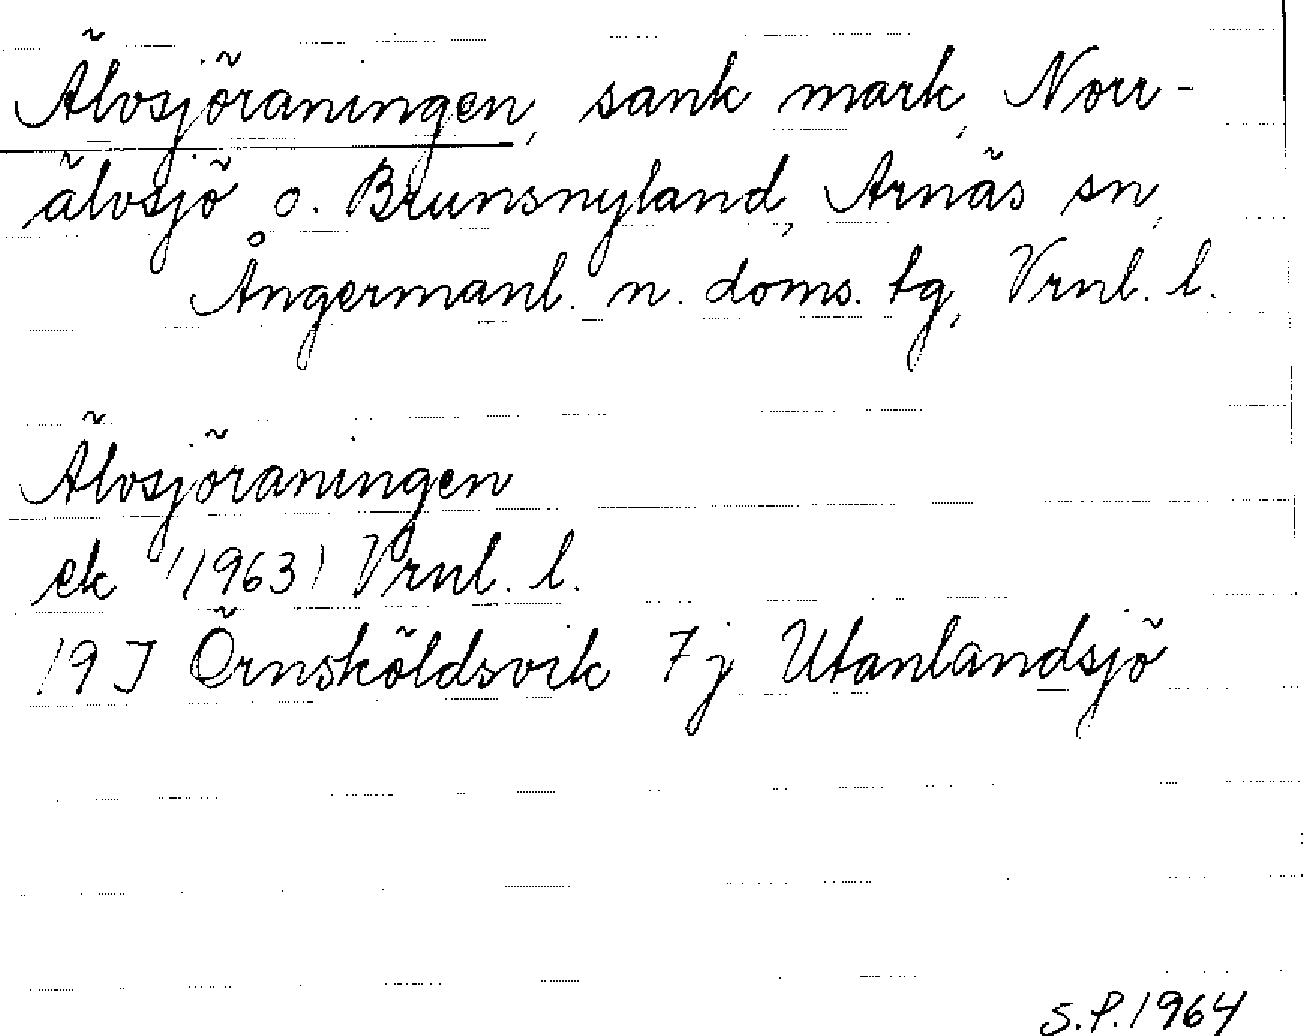 Älvsjöraningen, sank mark, Norr-
älvsjö o. Brunsnyland, Arnäs sn,
Ångermanl. n. doms. tg, Vrnl. l.
Älvsjöraningen
ek (1963) Vrnl. l.
19 J Örnsköldsvik 7 j Utanlandsjö
S.P. 1964